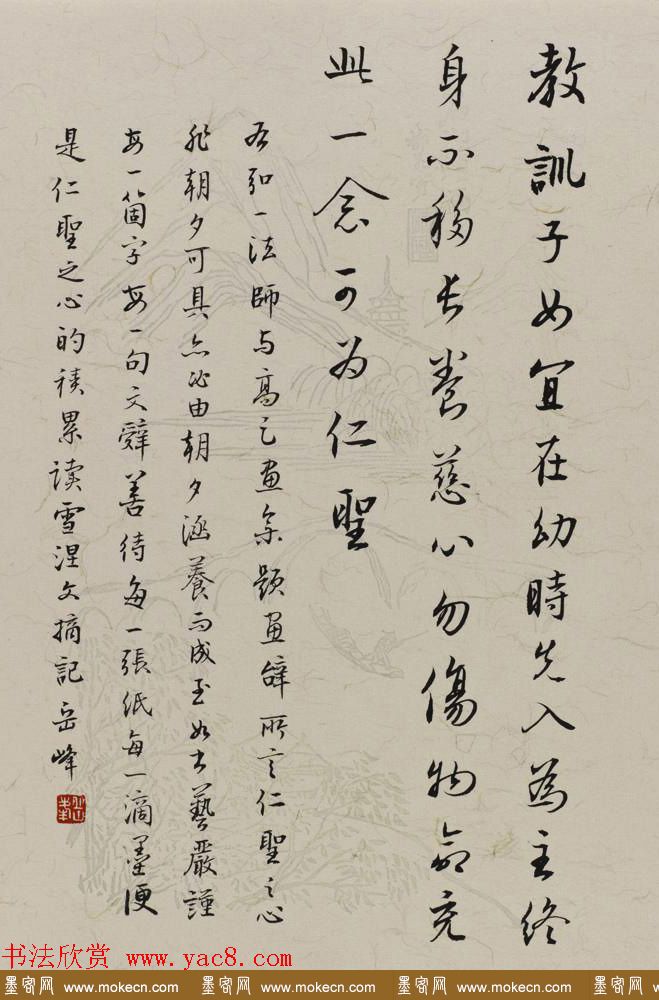 教訓子女宜在幼時先入為主終
身不移长養慈心勿傷物命充
此一念可为仁聖
右弘一法師与画集题画辞所言仁聖之心
非朝夕可具亦必由朝夕涵養而成至如书藝嚴謹
每一箇字每一句文辭善待每一張纸每一滴墨便
是仁聖之心的積累读雪涅文摘記岳峰
书法欣赏 www.yac8.com
墨客网 www.mokecn.com 墨客网 www.mokecn.com 墨客网 www.mokecn.com 墨客网 www.mokecn.com